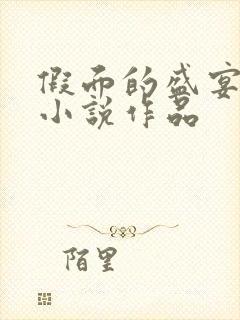 假面的盛宴
小说作品
陌里